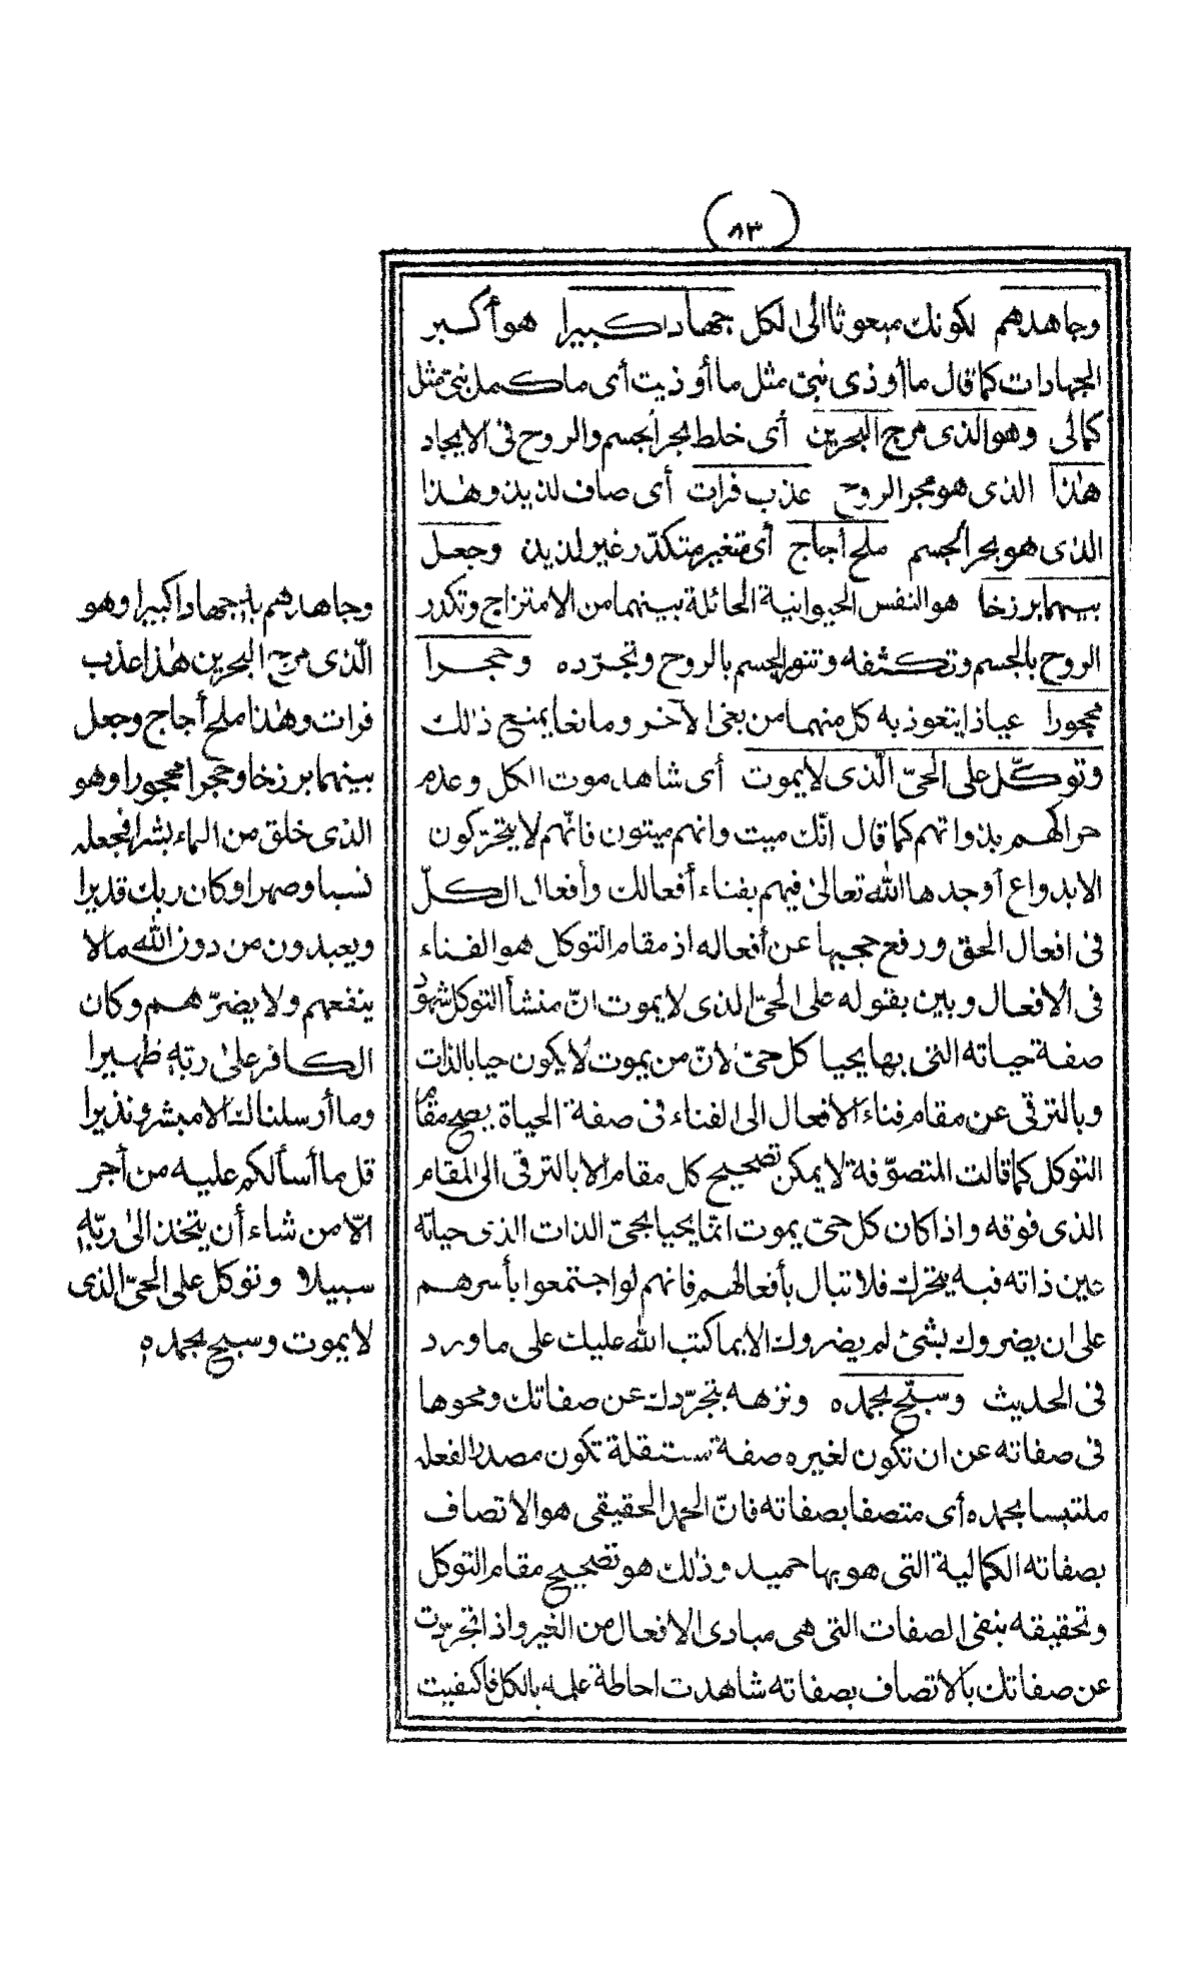 (٨٣)
وجاهدهم لكونك مبعوثا الى الكل جهادا كبيرا هو أكبر
الجهادات كما قال ما أوذى نبىّ مثل ما أوذيت أى ما كمل نبىّ مثل
كمالى وهو الذى مرج البحرين أى خلط بحر الجسم والروح فى الايجاد
هٰذا الذى هو بحر الروح عذب فرات أى صاف لذيذ وهٰذا
الذى هو بحر الجسم ملح أجاج أى متغير متكدّر غير لذيذ وجعل
بينهما برزخا هو النفس الحيوانية الحائلة بينهما من الامتزاج وتكدر
الروح بالجسم وتكثفه وتنور الجسم بالروح وتجرّده وحجرا
محجورا عياذا يتعوذ به كل منهما من بغى الآخر ومانعا يمنع ذٰلك
وتوكّل على الحىّ الّذى لا يموت أى شاهد موت الكل وعدم
حراكهم بذواتهم كما قال انّك ميت وانهم ميتون فانّهم لا يتحرّكون
الا بدواع أوجدها الله تعالىٰ فيهم بفناء أفعالك وأفعال الكلّ
فى افعال الحق ورفع حجبها عن أفعاله اذ مقام التوكل هو الفناء
فى الافعال وبين بقوله على الحىّ الذى لا يموت انّ منشأ التوكل شهود
صفة حياته التى بها يحيا كل حىّ لانّ من يموت لا يكون حيا بالذات
وبالترقى عن مقام فناء الافعال الى الفناء فى صفة الحياة يصح مقام
التوكل كما قالت المتصوّفة لا يمكن تصحيح كل مقام الا بالترقى الى المقام
الذى فوقه واذا كان كل حىّ يموت انّما يحيا بحىّ الذات الذى حياته
عين ذاته فبه يتحرك فلا تبال بأفعالهم فانهم لو اجتمعوا بأسرهم
على ان يضروك بشئ لم يضروك الا بما كتب الله عليك على ما ورد
فى الحديث وسبّح بحمده ونزهه بتجرّدك عن صفاتك ومحوها
فى صفاته عن ان تكون لغيره صفة مستقلة تكون مصدرا لفعله
ملتبسا بحمده أى متصفا بصفاته فانّ الحمد الحقيقى هو الاتصاف
بصفاته الكمالية التى هو بها حميد وذٰلك هو تصحيح مقام التوكل
وتحقيقه بنفى الصفات التى هى مبادى الافعال من الغير واذا تجرّدت
عن صفاتك بالاتصاف بصفاته شاهدت احاطة علمه بالكل فاكتفيت
وجاهدهم به جهادا كبيرا وهو
الّذى مرج البحرين هٰذا عذب
فرات وهٰذا ملح أجاج وجعل
بينهما برزخا وحجرا محجورا وهو
الذى خلق من الماء بشرا فجعله
نسبا وصهرا وكان ربك قديرا
ويعبدون من دون الله مالا
ينفعهم ولا يضرّهم وكان
الكافر علىٰ ربّهٖ ظهيرا
وما أرسلناك الا مبشرا ونذيرا
قل ما أسألكم عليه من أجر
الّا من شاء أن يتخذ الىٰ ربّهٖ
سبيلا وتوكل على الحىّ الذى
لا يموت وسبح بحمدهٖ